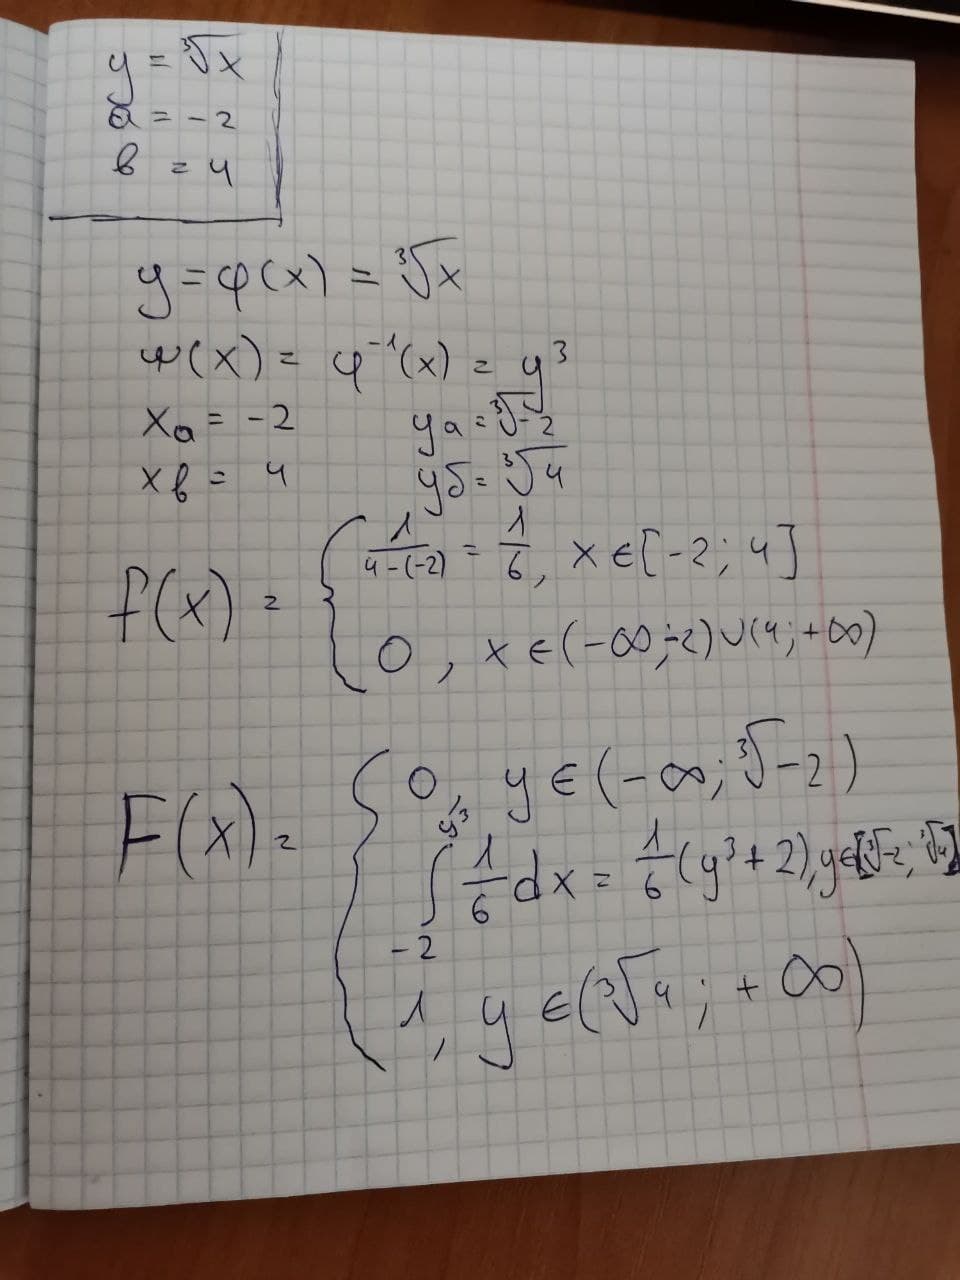 y = ∛x
a = -2
в = 4
y = φ(x) = ∛x
ψ(x) = φ⁻¹(x) = y³
xₐ = -2 yₐ = ∛-2
xв = 4 yб = ∛4
f(x) = { 1/(4-(-2)) = 1/6, x ∈ [-2; 4]
0, x ∈ (-∞; -2) ∪ (4; +∞)
F(x) = { 0, y ∈ (-∞; ∛-2)
∫₋₂^y³ 1/6 dx = 1/6 (y³ + 2), y ∈ [∛-2; ∛4]
1, y ∈ (∛4; +∞)